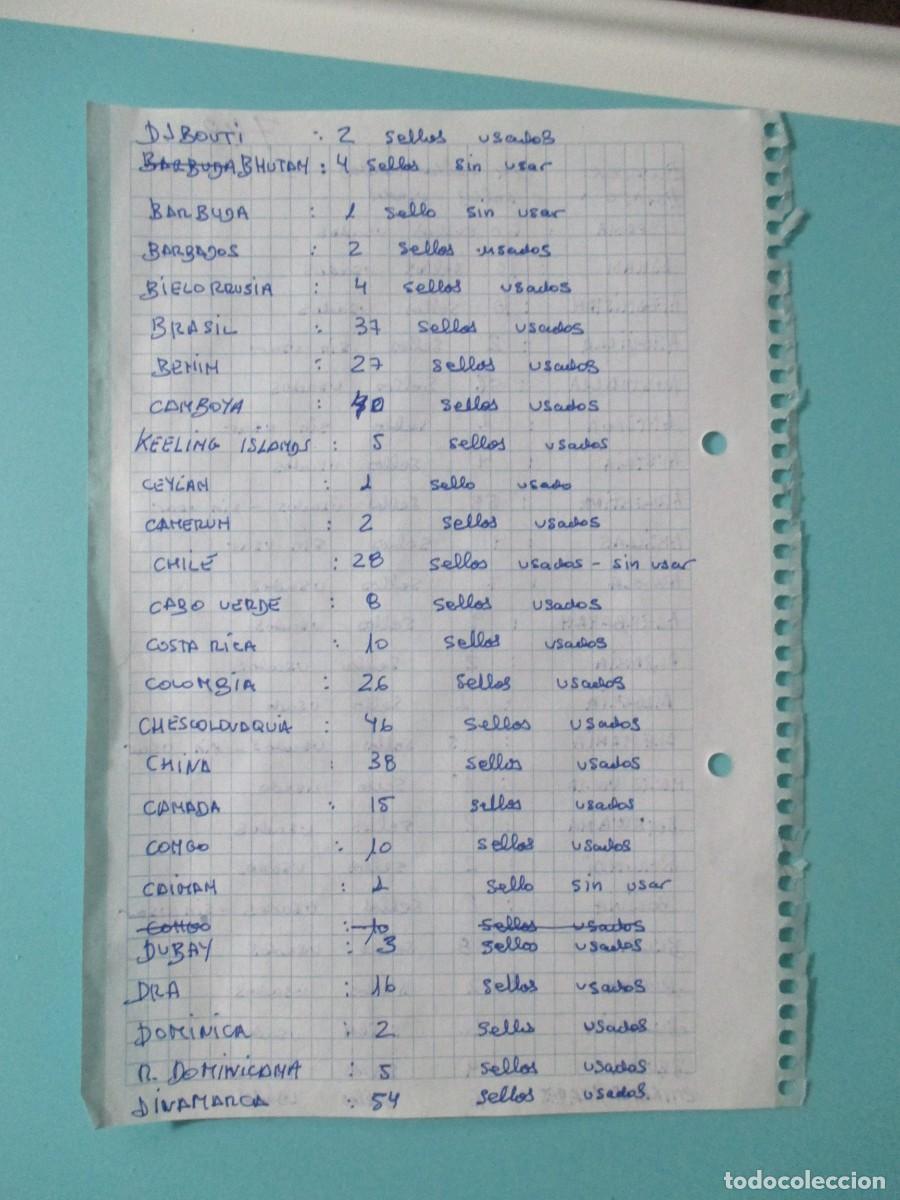 DJBOUTI : 2 sellos usados
BARBUDA BHUTAN : 4 sellos sin usar
BARBUDA : 1 sello sin usar
BARBADOS : 2 sellos usados
BIELORRUSIA : 4 sellos usados
BRASIL : 37 sellos usados
BENIN : 27 sellos usados
CAMBOYA : sellos usados
KEELING ISLANDS : 5 sellos usados
CEYLAN : 1 sello usado
CAMERUN : 2 sellos usados
CHILE : 28 sellos usados - sin usar
CABO VERDE : 8 sellos usados
COSTA RICA : 10 sellos usados
COLOMBIA : 26 sellos usados
CHESCOLOVAQUIA : 46 sellos usados
CHINA : 38 sellos usados
CANADA : 15 sellos usados
CONGO : 10 sellos usados
CAIMAN : 1 sello sin usar
CONGO : 10 sellos usados
DUBAY : 3 sellos usados
DRA : 16 sellos usados
DOMINICA : 2 sellos usados
R. DOMINICANA : 5 sellos usados
DINAMARCA : 54 sellos usados.
todocoleccion